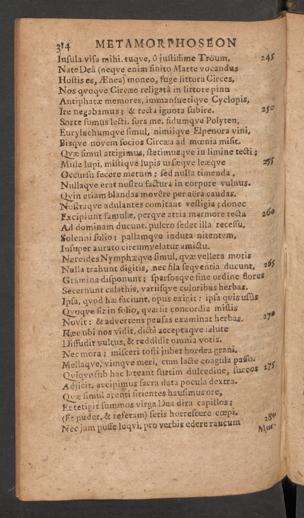 314 METAMORPHOSEON
Insula visa mihi. tuque, ô justissime Troum, 245
Nate Deâ (neque enim finito Marte vocandus
Hostis es, Ænea) moneo, fuge littora Circes,
Nos quoque Circæo religatâ in littore pinu
Antiphatæ memores, immansuetique Cyclopis,
Ire negabamus; & tecta ignota subire. 250
Sorte sumus lecti. sors me, fidumque Polyten,
Eurylochumque simul, nimiique Elpenora vini,
Bisque novem socios Circæa ad mœnia misit.
Quæ simul attigimus, stetimusque in limine tecti;
Mille lupi, mistique lupis ursæque leæque 255
Occursu fecere metum: sed nulla timenda,
Nullaque erat nostro factura in corpore vulnus.
Quin etiam blandas movêre per aëra caudas.
Nostraque adulantes comitant vestigia; donec
Excipiunt famulæ, perque atria marmore tecta 260
Ad dominam ducunt. pulcro sedet illa recessu,
Solenni solio; pallamque induta nitentem,
Insuper aurato circumvelatur amictu.
Nereides Nymphæque simul, quæ vellera motis
Nulla trahunt digitis, nec fila sequentia ducunt, 265
Gramina disponunt; sparsosque sine ordine flores
Secernunt calathis, variisque coloribus herbas.
Ipsa, quod hæ faciunt, opus exigit: ipsa quis usus
Quoque sit in folio, quæ sit concordia mistis
Novit: & advertens pensas examinat herbas. 270
Hæc ubi nos vidit, dictâ acceptaque salute
Diffudit vultus, & reddidit omnia votis.
Nec mora; misceri tosti jubet hordea grani,
Mellaque, vimque meri, cum lacte coagula passo.
Quique sub hac lateant furtim dulcedine, succos 275
Adjicit. accipimus sacra data pocula dextra.
Quæ simul arenti sitientes hausimus ore,
Et tetigit summos virga Dea dira capillos;
(Et pudet, & referam) setis horrescere cœpi,
Nec jam posse loqui, pro verbis edere raucum 280